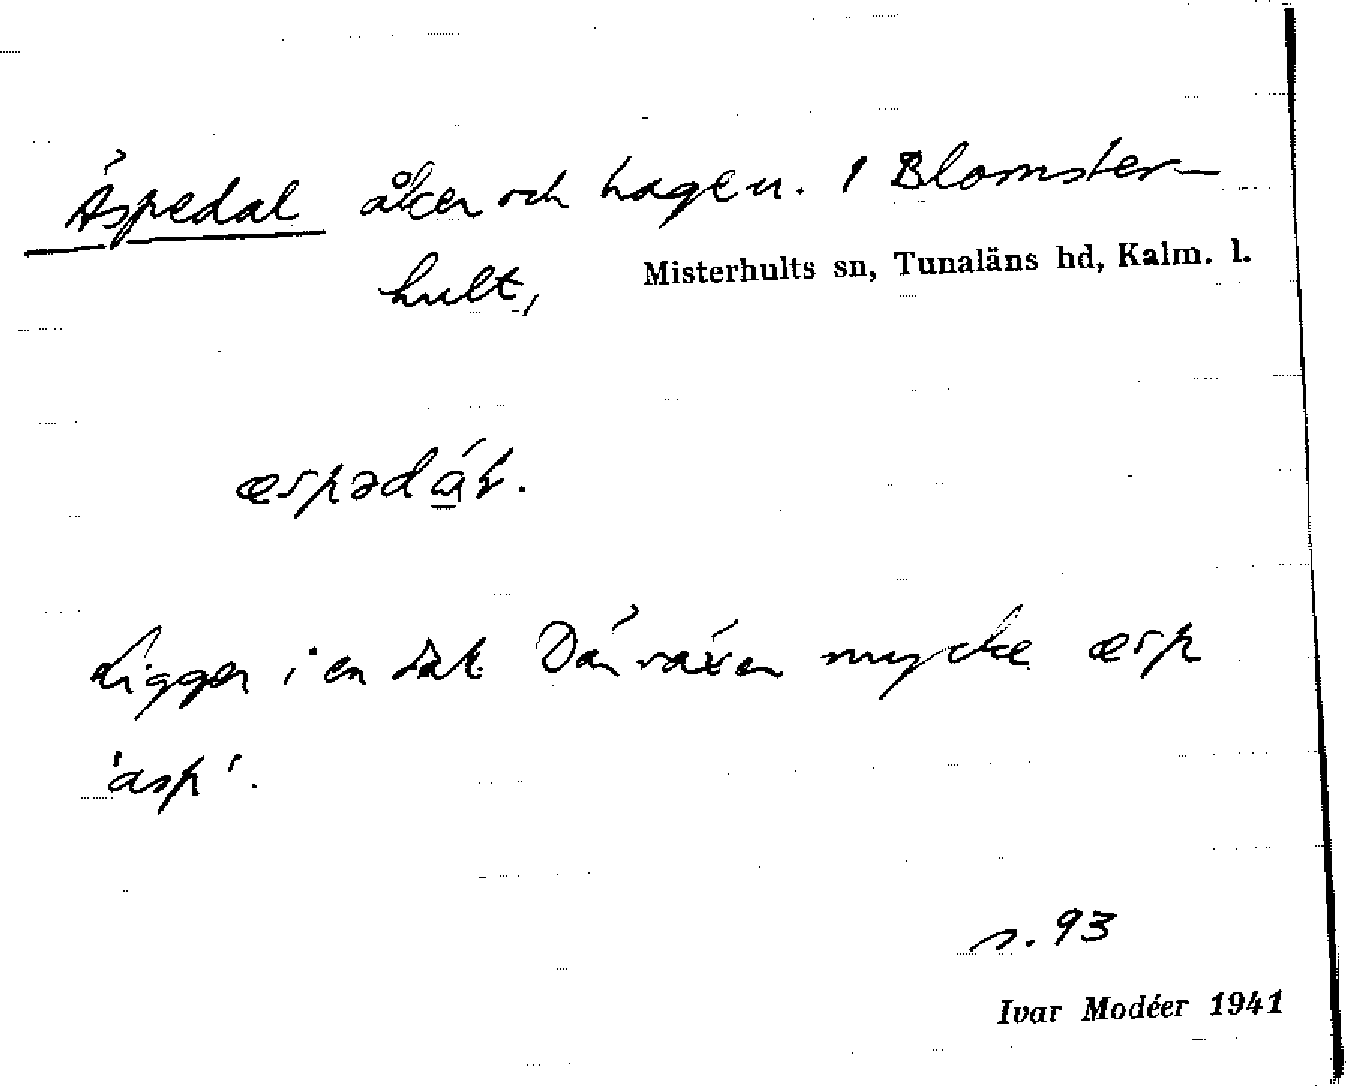 Äspedal åker och hagen. 1 Blomster-
hult, Misterhults sn, Tunaläns hd, Kalm. l.
æspədáɫ.
Ligger i en dal. Där växer mycke æsp
'asp'.
s. 93
Ivar Modéer 1941